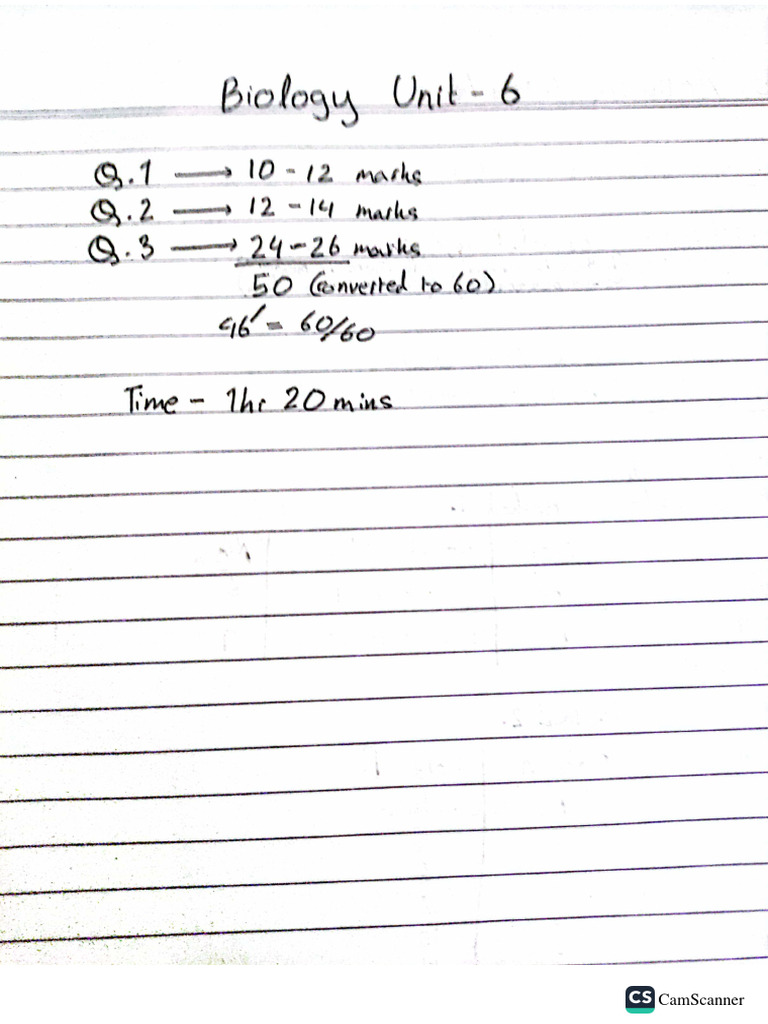 Biology Unit - 6
Q.1 → 10 - 12 marks
Q.2 → 12 - 14 marks
Q.3 → 24 - 26 marks
50 (converted to 60)
46' = 60/60
Time - 1hr 20 mins
CS CamScanner